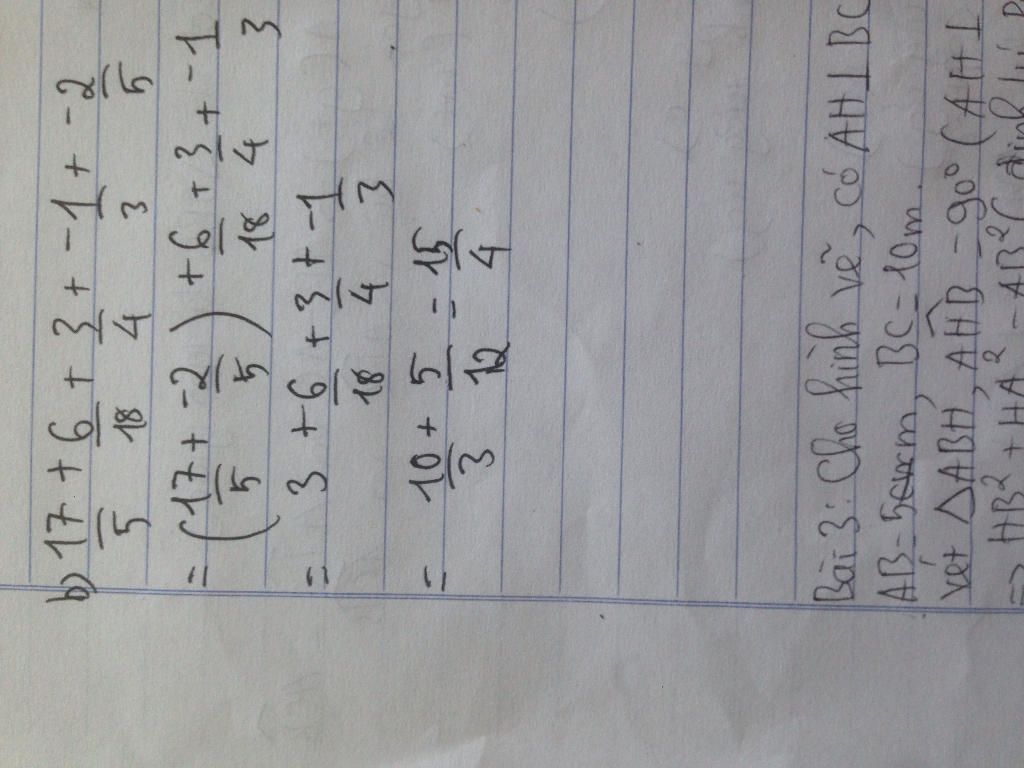 b) 17/5 + 6/18 + 3/4 + -1/3 + -2/5
= (17/5 + -2/5) + 6/18 + 3/4 + -1/3
= 3 + 6/18 + 3/4 + -1/3
= 10/3 + 5/12 = 15/4
Bài 3: Cho hình vẽ, có AH⊥BC
AB = 5 m, BC = 10m.
Xét ΔABH, AHB = 90° (AH⊥
=> HB² + HA² = AB² (định lí